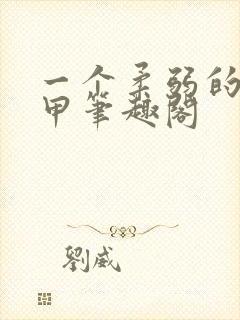 一个柔弱的
甲笔趣阁
劉威